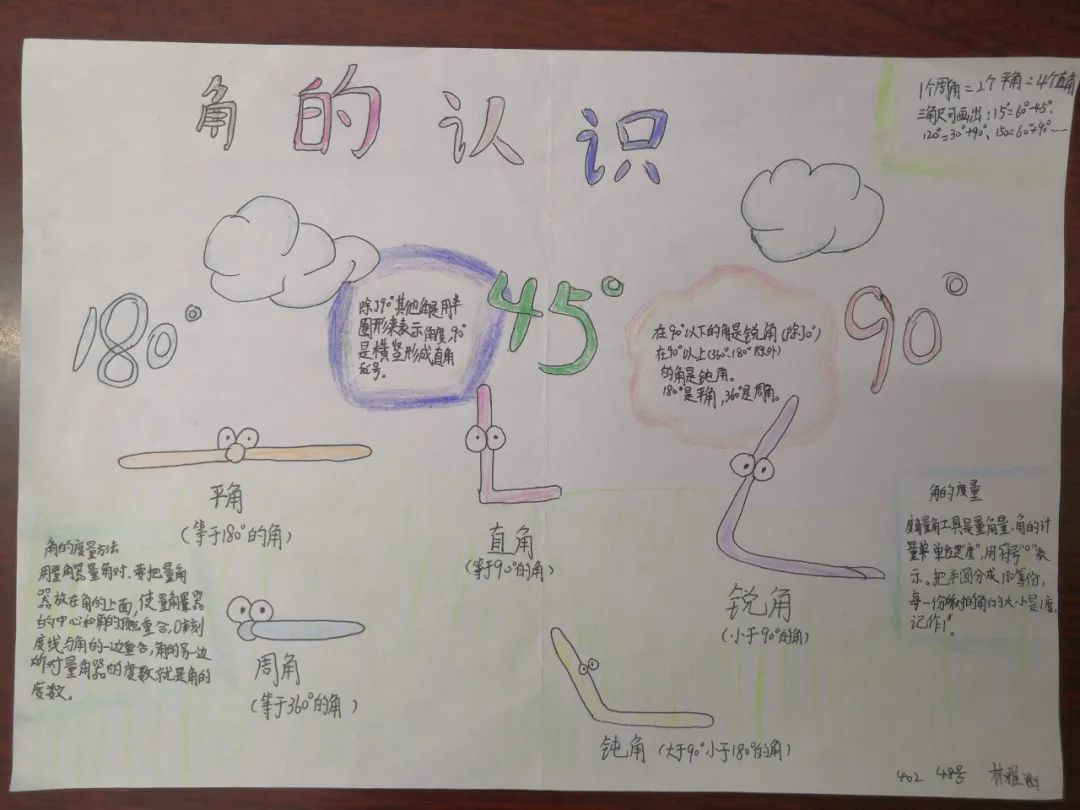 角的认识
1个周角=2个平角=4个直角
三角尺可画出:15°=60°-45°.
120°=30°+90°、150=60°+90°……
180°
除了90°其他角是用半
圆形来表示角度,90°
是横竖形成直角
符号。
45°
在90°以下的角是锐角(除90°)
在90°以上(360°、180°除外)
的角是钝角。
180°是平角,360°是周角。
90°
平角
(等于180°的角)
直角
(等于90°的角)
锐角
(小于90°的角)
角的度量方法
用量角器量角时、要把量角
器放在角的上面,使量角器
的中心和角的顶点重合,0°刻
度线与角的一边重合,角的另一边
所对量角器的度数,就是角的
度数。
周角
(等于360°的角)
钝角(大于90°小于180°的角)
角的度量
度量角工具是量角器,角的计
量单位是"度",用符号"°"表
示。把半圆分成180等份,
每一份所对的角的大小是1度,
记作1°。
402 48号 林雅